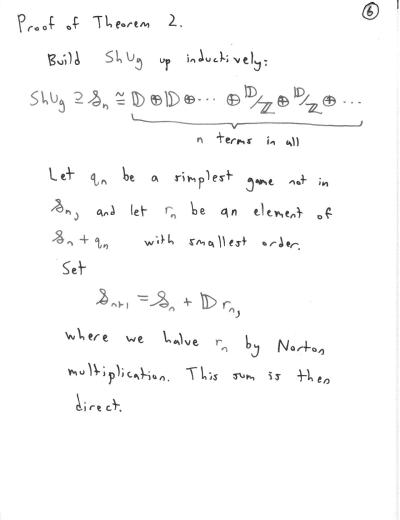 ⑥
Proof of Theorem 2.
Build ShUg up inductively:
ShUg ⊇ 𝒮ₙ ≅ 𝔻 ⊕ 𝔻 ⊕ ··· ⊕ 𝔻/ℤ ⊕ 𝔻/ℤ ⊕ ···
n terms in all
Let qₙ be a simplest game not in
𝒮ₙ, and let rₙ be an element of
𝒮ₙ + qₙ with smallest order.
Set
𝒮ₙ₊₁ = 𝒮ₙ + 𝔻rₙ,
where we halve rₙ by Norton
multiplication. This sum is then
direct.